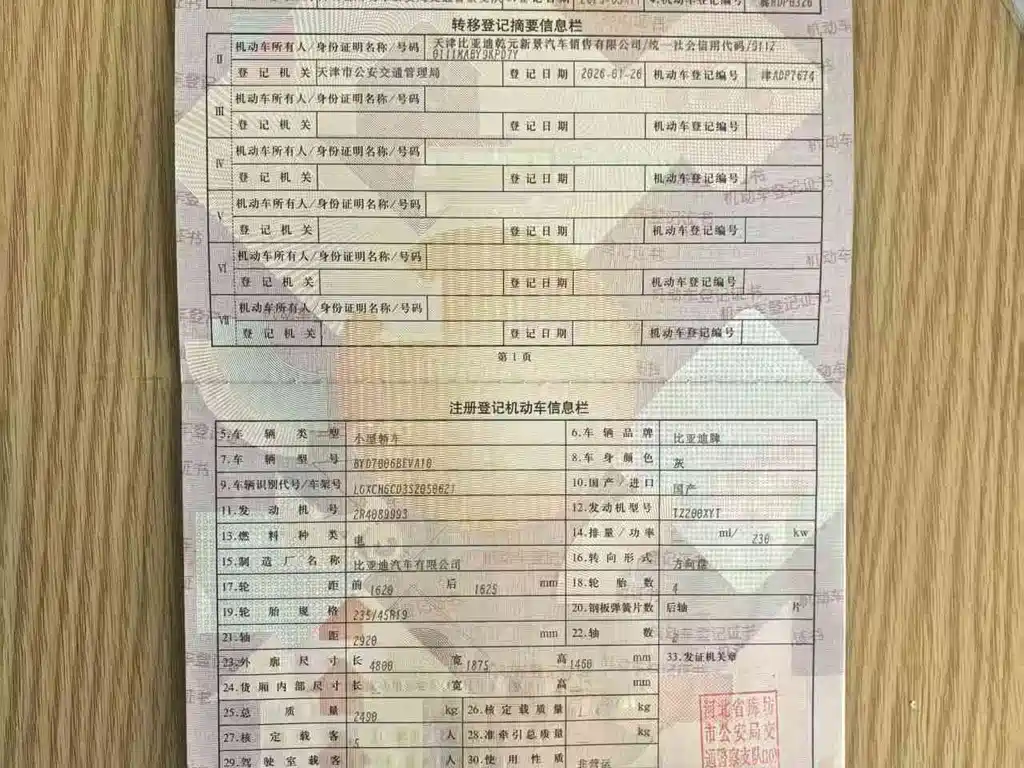 转移登记摘要信息栏
Ⅱ 机动车所有人/身份证明名称/号码 天津比亚迪乾元新景汽车销售有限公司/统一社会信用代码/9112
0111MABY9KP07Y
登记机关 天津市公安交通管理局 登记日期 2026-01-26 机动车登记编号 津ADP7674
Ⅲ 机动车所有人/身份证明名称/号码
登记机关 登记日期 机动车登记编号
Ⅳ 机动车所有人/身份证明名称/号码
登记机关 登记日期 机动车登记编号
Ⅴ 机动车所有人/身份证明名称/号码
登记机关 登记日期 机动车登记编号
Ⅵ 机动车所有人/身份证明名称/号码
登记机关 登记日期 机动车登记编号
Ⅶ 机动车所有人/身份证明名称/号码
登记机关 登记日期 机动车登记编号
第1页
注册登记机动车信息栏
5.车辆类型 小型轿车 6.车辆品牌 比亚迪牌
7.车辆型号 BYD7006BEVA10 8.车身颜色 灰
9.车辆识别代号/车架号 LGXCH6CD3S2050621 10.国产/进口 国产
11.发动机号 2R4089993 12.发动机型号 TZ200XYT
13.燃料种类 电 14.排量/功率 ml/ 230 kw
15.制造厂名称 比亚迪汽车有限公司 16.转向形式 方向盘
17.轮距 前 1620 后 1625 mm 18.轮胎数 4
19.轮胎规格 235/45R19 20.钢板弹簧片数 后轴 片
21.轴距 2920 mm 22.轴数 2
23.外廓尺寸 长 4800 宽 1875 高 1460 mm 33.发证机关章
24.货厢内部尺寸 长 宽 高 mm
25.总质量 2490 kg 26.核定载质量 kg
27.核定载客 5 人 28.准牵引总质量 kg
29.驾驶室载客 人 30.使用性质 非营运
河北省廊坊
市公安局交
通警察支队